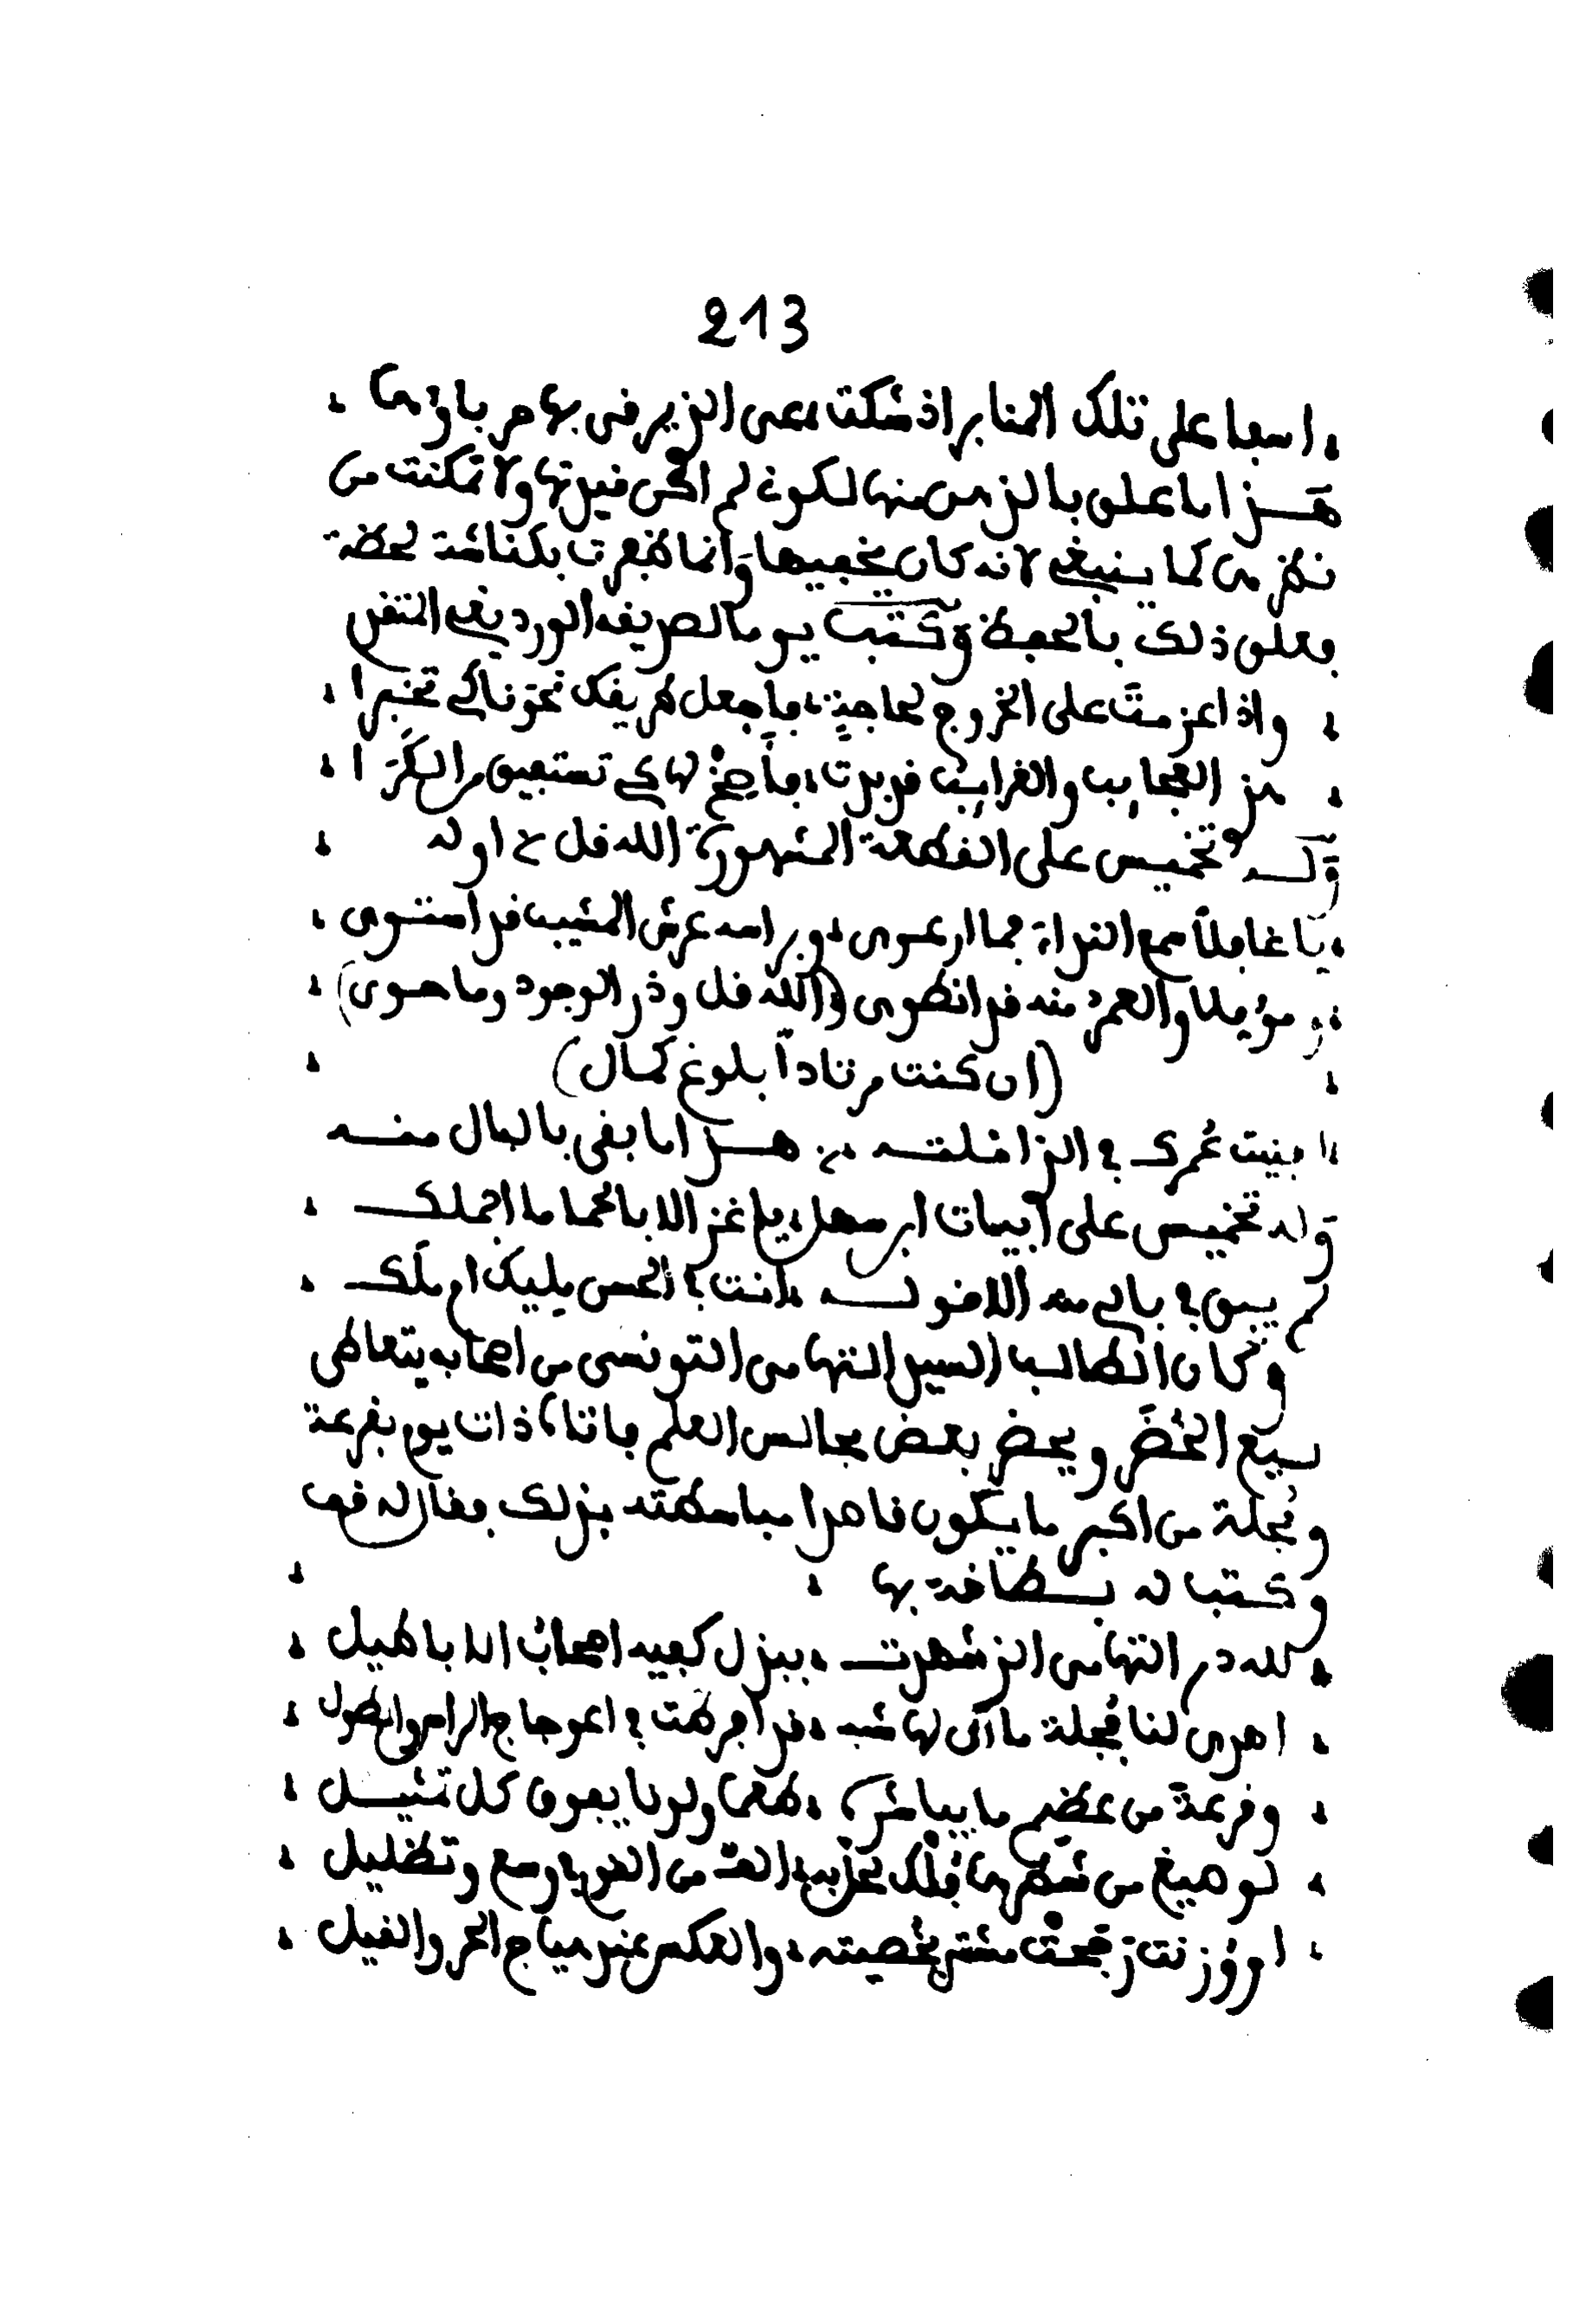 213
اسفا على تلك المنابر اذ شكت رعى الذين رقى بها من باوها
هذا ما علق بالذهن منها لكونى لم اكن قيدتها ولا تمكنت من
نظرى كما ينبغي لانه كان يخفيها وانما ظفرت بكناشة لحظة
فعلق ذلك بالحفظ وكتب يوما لصديقه الورديغي المتقن
واذا عزمت على الخروج لحاجة، فاجعل طريقك نحونا كي تخبرا
عن العجايب والغرايب قد بدت، فاصخ لها كي تستفيق من الكرا
وله تخميس على القطعة المشهورة الله قل ع اوله
يا غافلا سمع النداء فما ارعوى، وبراسه عرش المشيب قد استوى
ومؤملا والعمر منه قد انطوى (الله قل وذر الوجود وما حوى)
(ان كنت مرتادا بلوغ كمال)
افنيت عمرك في الذا خلته ... هذا ما بقى بالبال منه
وله تخميس على ابيات ابن سهل، يا غزالا بالحما ما اجملك
لم يبق في بالي منه الا قوله، انت في الحسن مليك ام ملك
وكان الطالب السيد التهامى التونسى من اصحابه يتعاطى
بيع الخضر ويحضر بعض مجالس العلم فاتاه ذات يوم بقرعة
وفجلة من اكبر ما يكون قاصدا مباسطته بذلك فقال له قف
وكتب له بطاقة بها
لله در التهامى الذ شهرت، ببذل كفيه اصحاب الاباطيل
اهدى لنا فجلة ما ان لها شبه، قد افرطت في اعوجاج الراس والطول
وقرعة من عظيم ما يباشره، طعما ولونا يفوق كل تمثيل
لو صيغ من شطرها فلك لجاز به، الف من القوم اوسع وتظليل
او وزنت رجحت مشتر بخصيته، والعكس عند هياج الحر والفيل